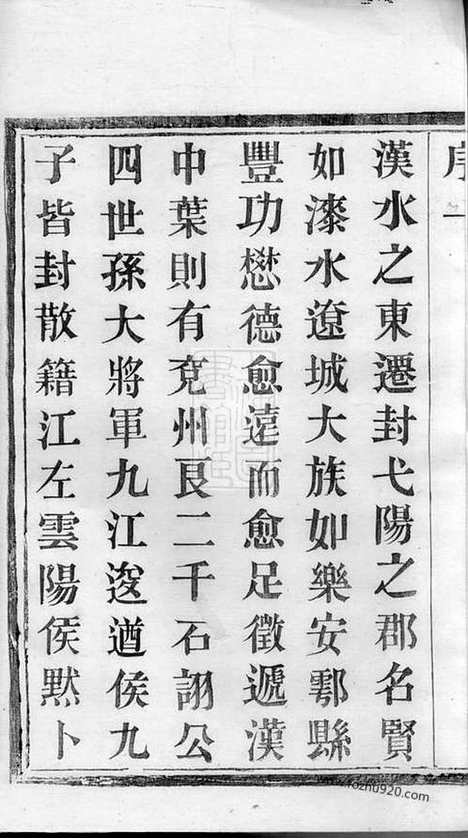 序一
漢水之東遷封弋陽之郡名賢
如漆水遼城大族如樂安鄠縣
豐功懋德愈遠而愈足徵遞漢
中葉則有兗州艮二千石詡公
四世孫大將軍九江逡遒侯九
子皆封散籍江左雲陽侯默卜
www.fozhu920.com